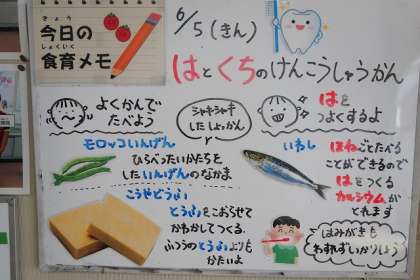 きょう
今日の
しょくいく
食育メモ
6/5(きん)
はとくちのけんこうしゅうかん
よくかんで
たべよう
シャキシャキ
したしょっかん
はを
つよくするよ
モロッコいんげん
ひらべったいかたちを
したいんげんのなかま
こうやどうふ
とうふをこおらせて
かわかしてつくる。
ふつうのとうふよりも
かたいよ
いわし
ほねごとたべる
ことができるので
はをつくる
カルシウムが
とれます
はみがきも
わすれずいかりしよう